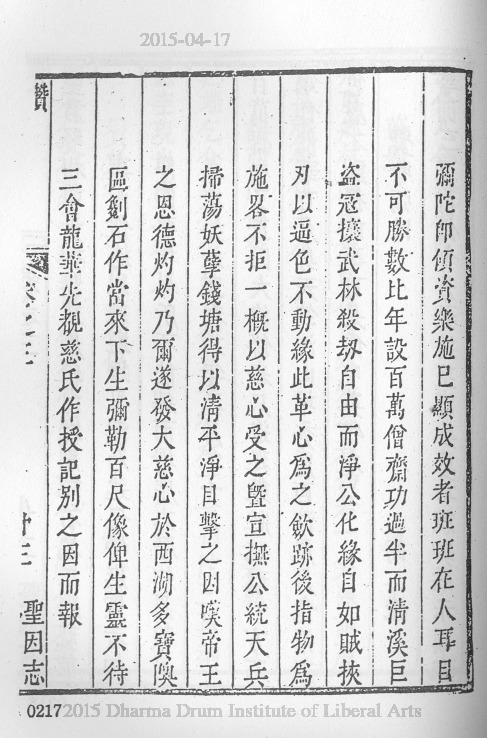 2015-04-17
彌陀即傾資樂施已顯成效者班班在人耳目
不可勝數比年設百萬僧齋功過半而清溪巨
盜寇攘武林殺刼自由而淨公化緣自如賊挾
刃以逼色不動緣此革心爲之歛跡後指物爲
施畧不拒一概以慈心受之曁宣撫公統天兵
掃蕩妖孽錢塘得以清平淨目擊之因嘆帝王
之恩德灼灼乃爾遂發大慈心於西湖多寶㠗
區劖石作當來下生彌勒百尺像俾生靈不待
三會龍華先覩慈氏作授記別之因而報
卷之三
廿三
聖因志
0217
2015 Dharma Drum Institute of Liberal Arts